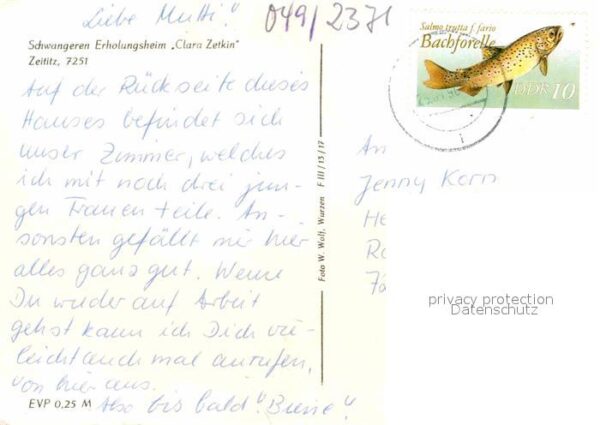 Liebe Mutti!
049/2371
Schwangeren Erholungsheim „Clara Zetkin"
Zeititz, 7251
Auf der Rückseite dieses
Hauses befindet sich
unser Zimmer, welches
ich mit noch drei jun-
gen Frauen teile. An-
sonsten gefällt mir hier
alles ganz gut. Wenn
Du wieder auf Arbeit
gehst kann ich Dich vie-
leicht auch mal anrufen,
von hier aus.
Also bis bald! "Biene"!
EVP 0,25 M
Foto W. Wolf, Wurzen F III/13/17
Salmo trutta f. fario
Bachforelle
DDR 10
An
Jenny Kern
He
Ro
privacy protection
Datenschutz